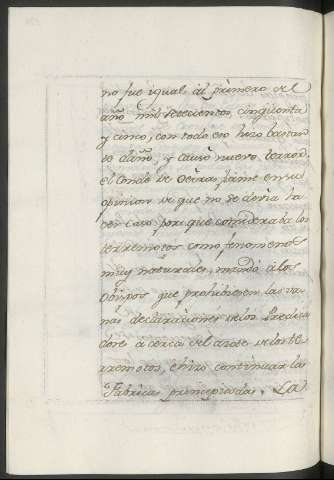 no fue igual al primero del
año mil setecientos cinquenta
y cinco, con todo eso hizo bastan
te daño, y causó nuevo terror,
el Conde de Oeiras firme en su
opinion de que no se devia ha
cer caso por que consideraba los
terremotos como fenomenos
muy naturales, mandó á los
obispos que prohibiesen las va
nas declaraciones de los Predica
dores á cerca del azote de los te
rremotos, é hizo continuar las
Fabricas principiadas. La